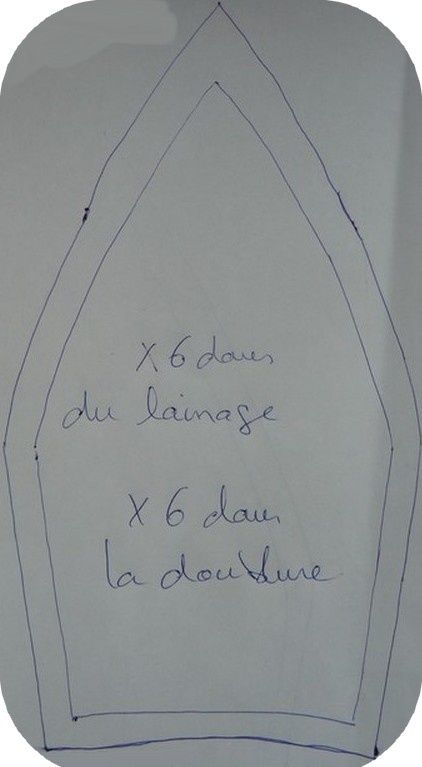 X 6 dans
du lainage
X 6 dans
la doublure